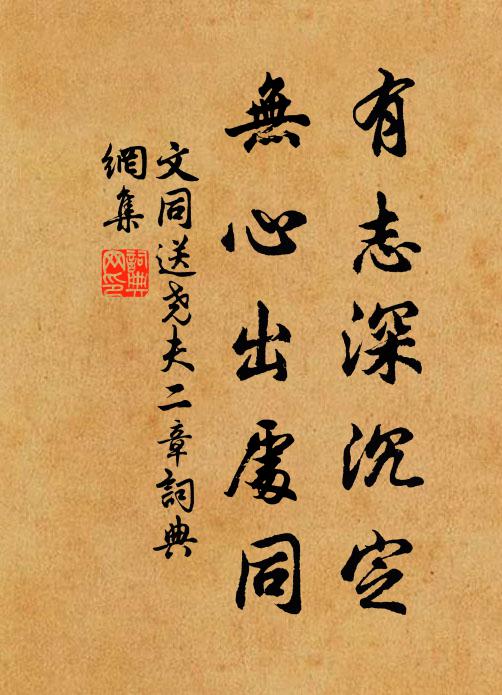 有志深沉定
無心出處同
文同送尧夫二章詞典
網集
詞典
网印